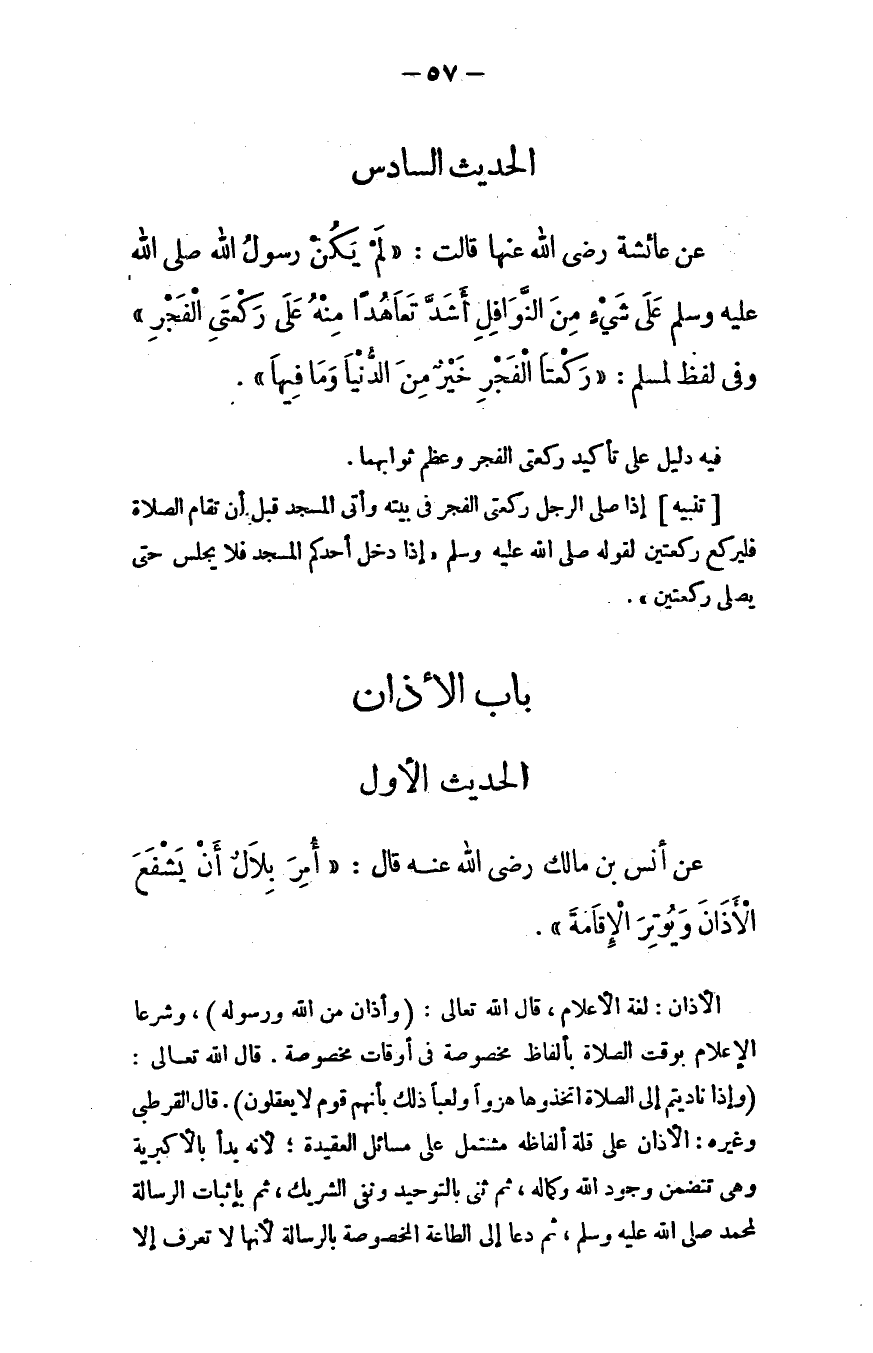 — ٥٧ —
الحديث السادس
عن عائشة رضى الله عنها قالت : « لَمْ يَكُنْ رسولُ الله صلى الله
عليه وسلم عَلَى شَيْءٍ مِنَ النَّوَافِلِ أَشَدَّ تَعَاهُدًا مِنْهُ عَلَى رَكْعَتَىِ الْفَجْرِ »
وفى لفظ لمسلم : « رَكْعَتَا الْفَجْرِ خَيْرٌ مِنَ الدُّنْيَا وَمَا فِيهَا » .
فيه دليل على تأكيد ركعتى الفجر وعظم ثوابهما .
[ تنبيه ] إذا صلى الرجل ركعتى الفجر فى بيته وأتى المسجد قبل أن تقام الصلاة
فليركع ركعتين لقوله صلى الله عليه وسلم « إذا دخل أحدكم المسجد فلا يجلس حتى
يصلى ركعتين » .
باب الأذان
الحديث الأول
عن أنس بن مالك رضى الله عنه قال : « أُمِرَ بِلاَلٌ أَنْ يَشْفَعَ
الْأَذَانَ وَيُوتِرَ الْإِقَامَةَ » .
الأذان : لغة الأعلام ، قال الله تعالى : ( وأذان من الله ورسوله ) ، وشرعا
الإعلام بوقت الصلاة بألفاظ مخصوصة فى أوقات مخصوصة . قال الله تعالى :
(وإذا ناديتم إلى الصلاة اتخذوها هزواً ولعباً ذلك بأنهم قوم لا يعقلون) . قال القرطبى
وغيره : الأذان على قلة ألفاظه مشتمل على مسائل العقيدة ؛ لأنه بدأ بالأكبرية
وهى تتضمن وجود الله وكماله ، ثم ثنى بالتوحيد ونفى الشريك ، ثم بإثبات الرسالة
لمحمد صلى الله عليه وسلم ، ثم دعا إلى الطاعة المخصوصة بالرسالة لأنها لا تعرف إلا